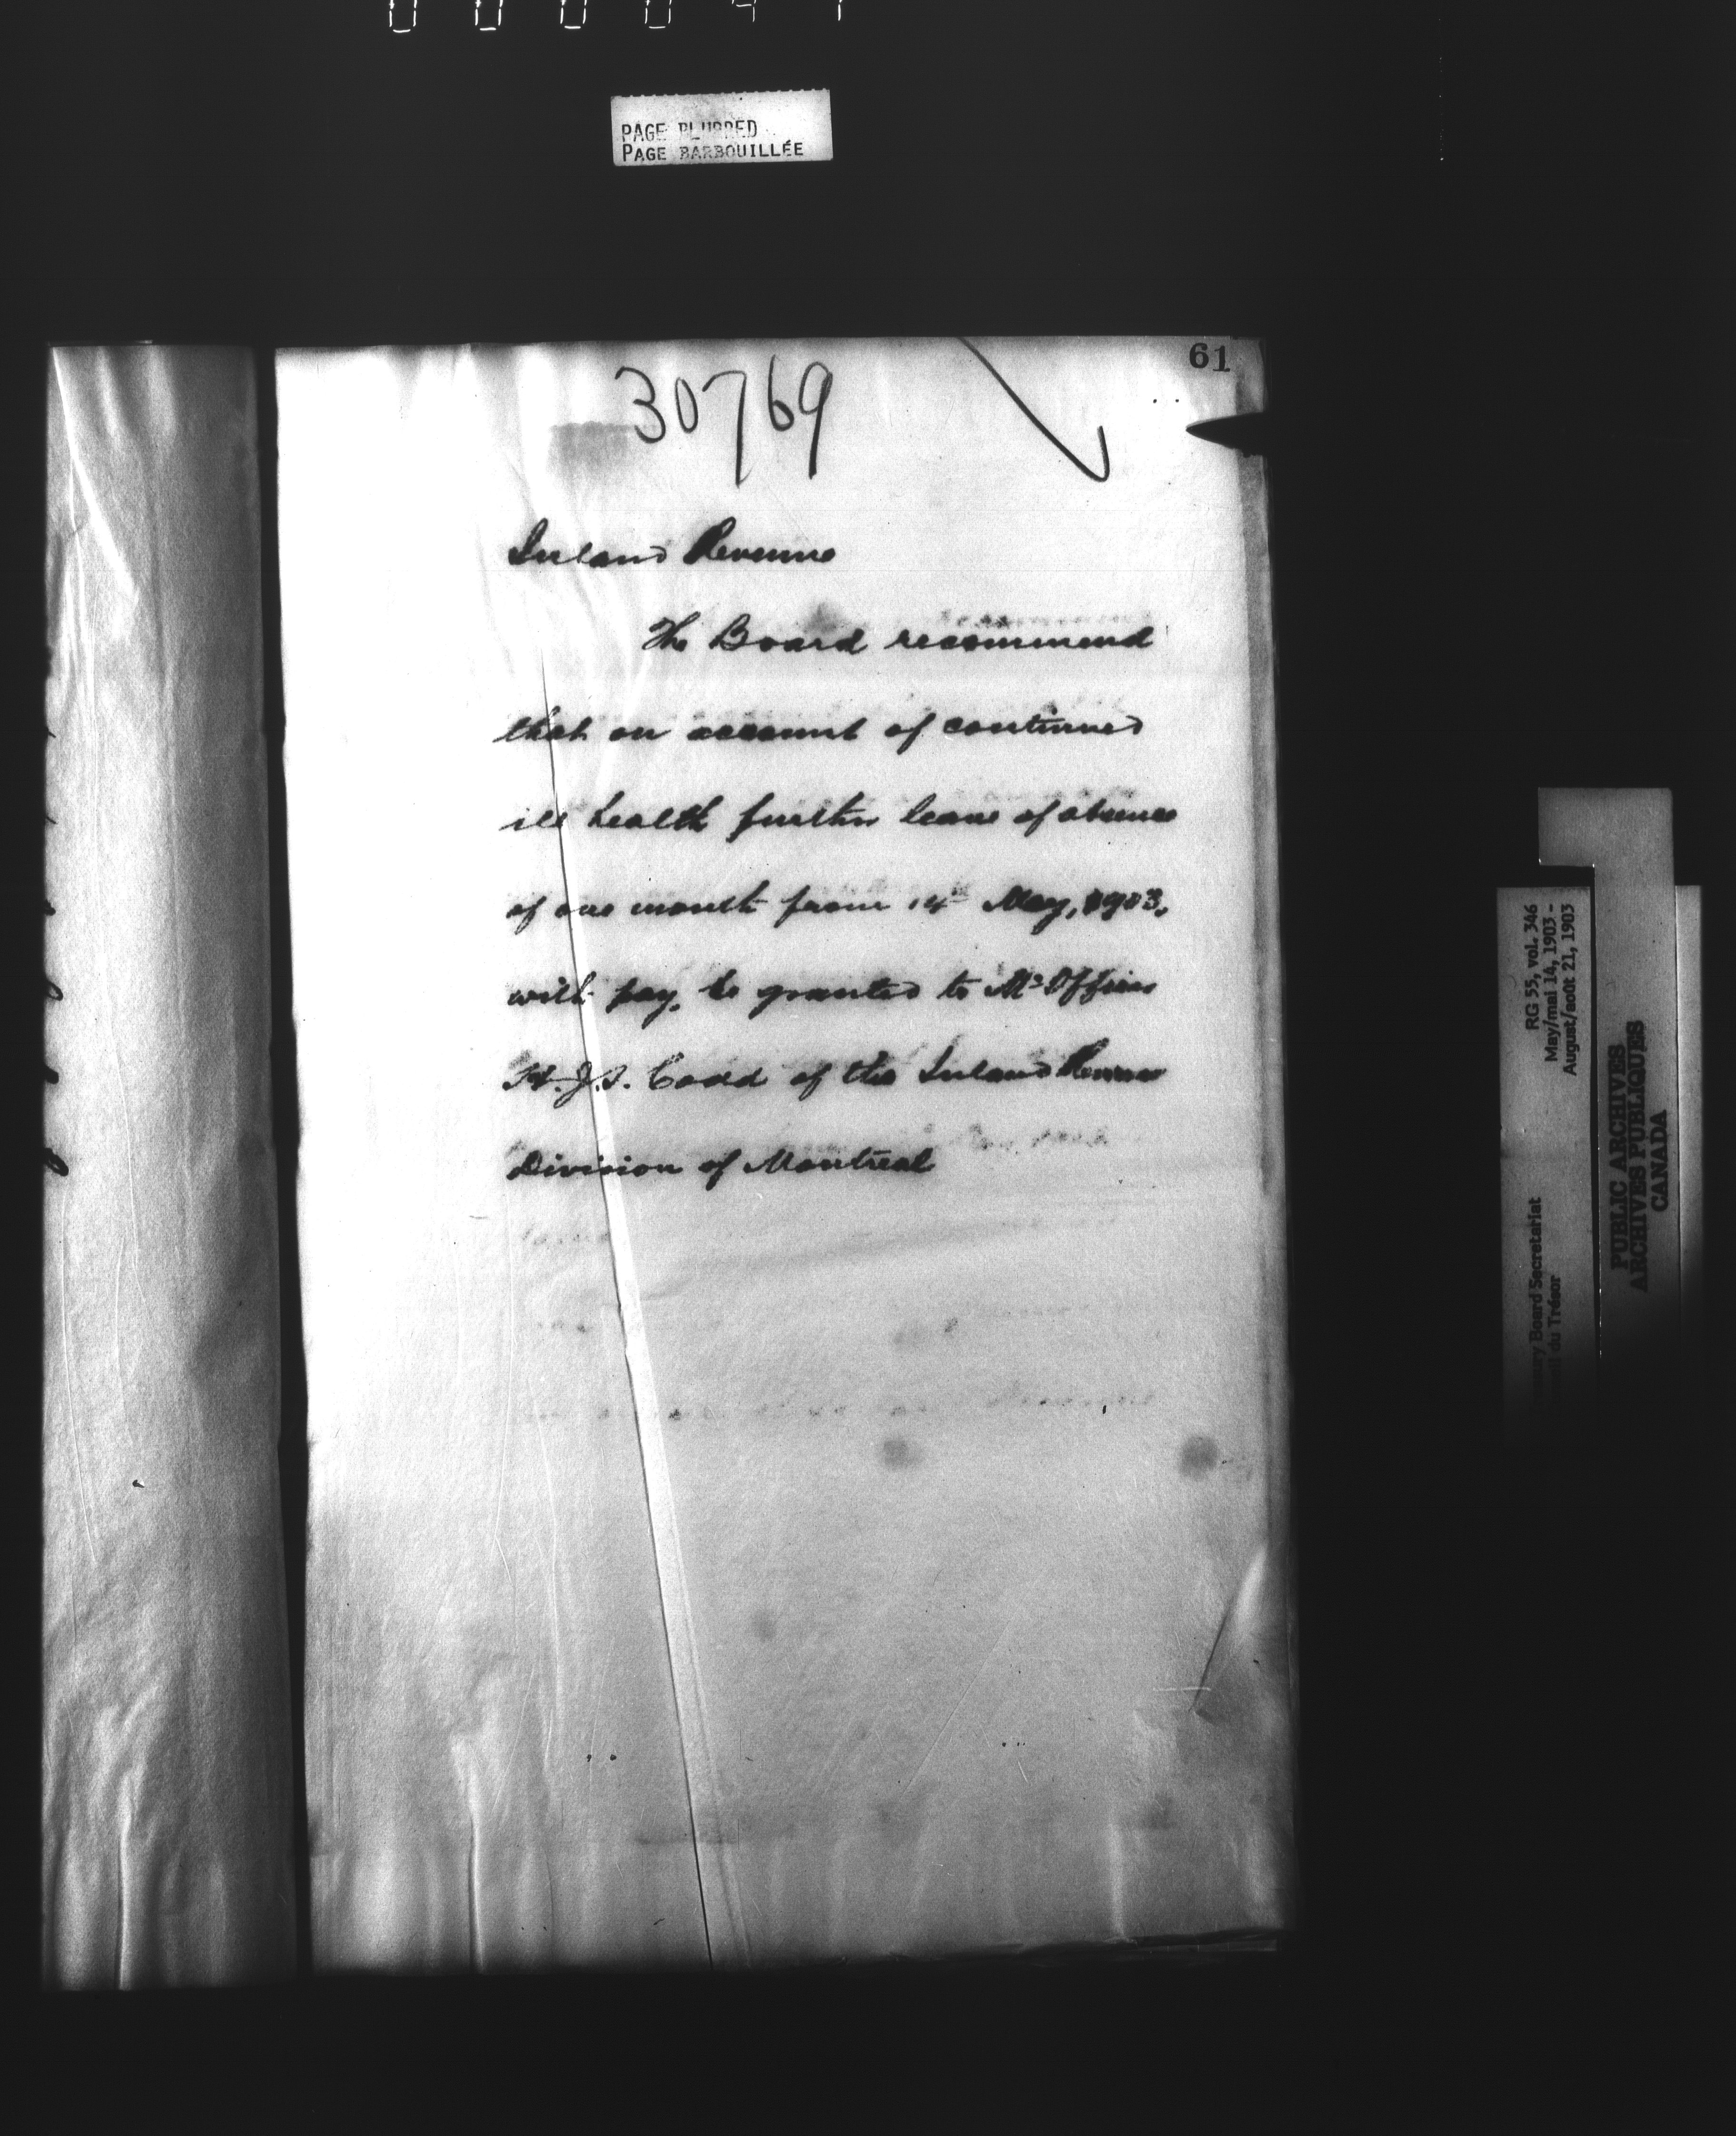 PAGE BLURRED
PAGE BARBOUILLÉE
61
30769
Inland Revenue
The Board recommend
that on account of continued
ill health further leave of absence
of one month from 14th May, 1903,
with pay, be granted to Mr Officer
Codd of the Inland Revenue
Division of Montreal
RG 55, vol. 346
May/mai 14, 1903 -
August/août 21, 1903
Board Secretariat
du Trésor
PUBLIC ARCHIVES
ARCHIVES PUBLIQUES
CANADA